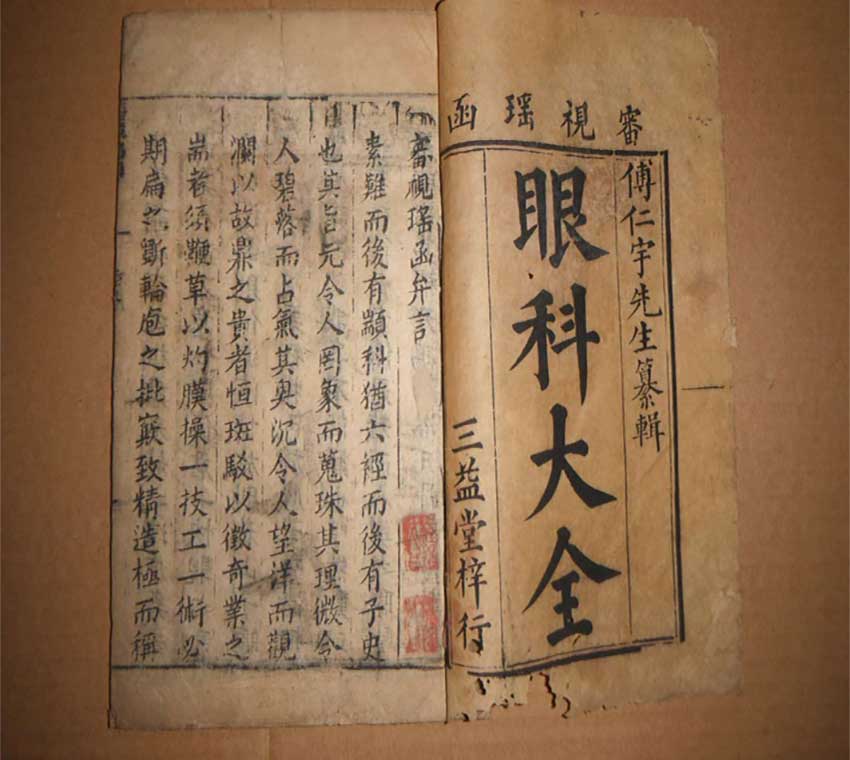 審視瑶函
傅仁宇先生纂輯
眼科大全
三益堂梓行
審視瑶函弁言
素難而後有顓科猶六經而後有子史
也其旨元令人罔象而蒐珠其理微令
人碧落而占氣其奥沉令人望洋而觀
瀾以故鼎之貴者恒斑駁以徵奇業之
耑者須鞭草以灼膜操一技工一術必
期扁之斲輪庖之批窾致精造極而稱